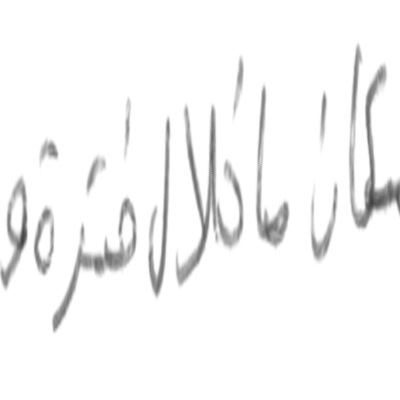 مكان ما خلال فترة و